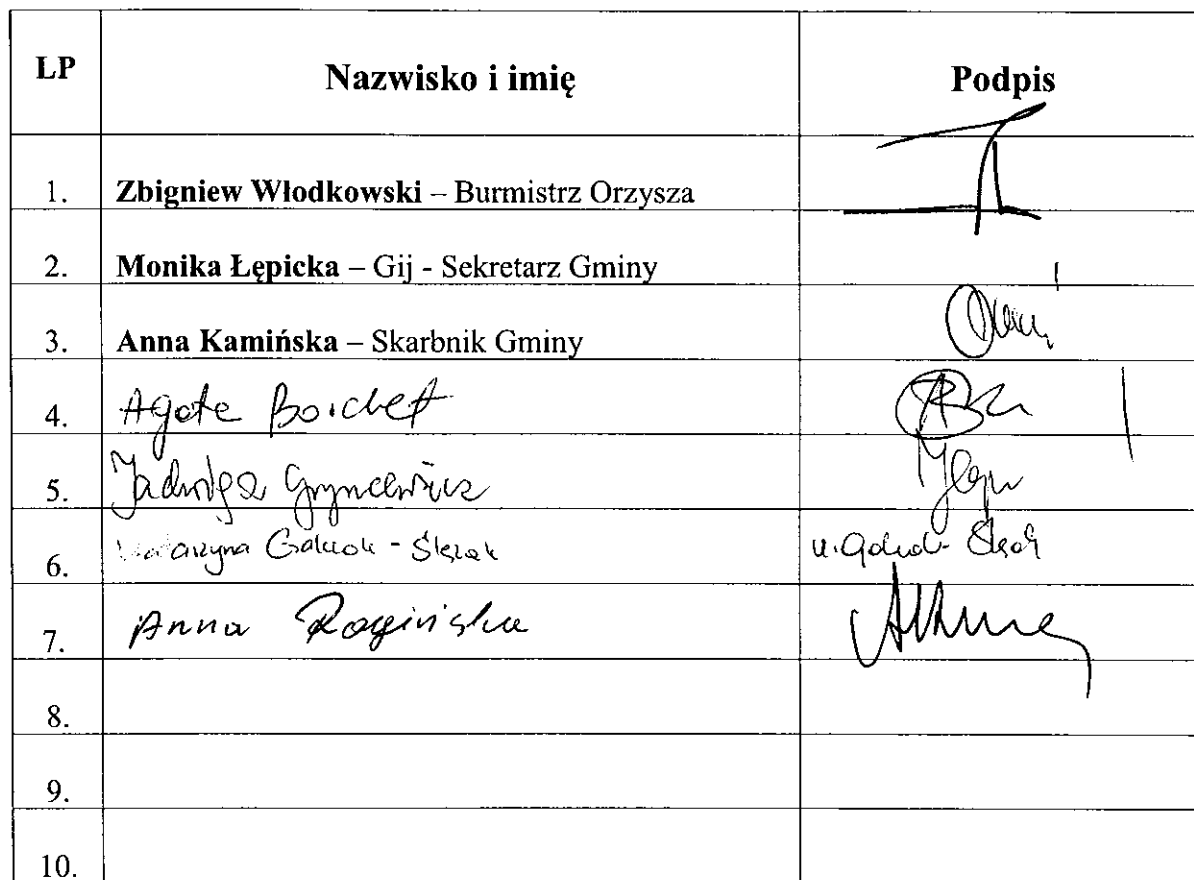 LP Nazwisko i imię Podpis
1. Zbigniew Włodkowski – Burmistrz Orzysza
2. Monika Łępicka – Gij - Sekretarz Gminy
3. Anna Kamińska – Skarbnik Gminy
4. Agata
5. Jadwiga Gryncewicz
6. Katarzyna - Ślęzak
7. Anna Rogińska
8.
9.
10.